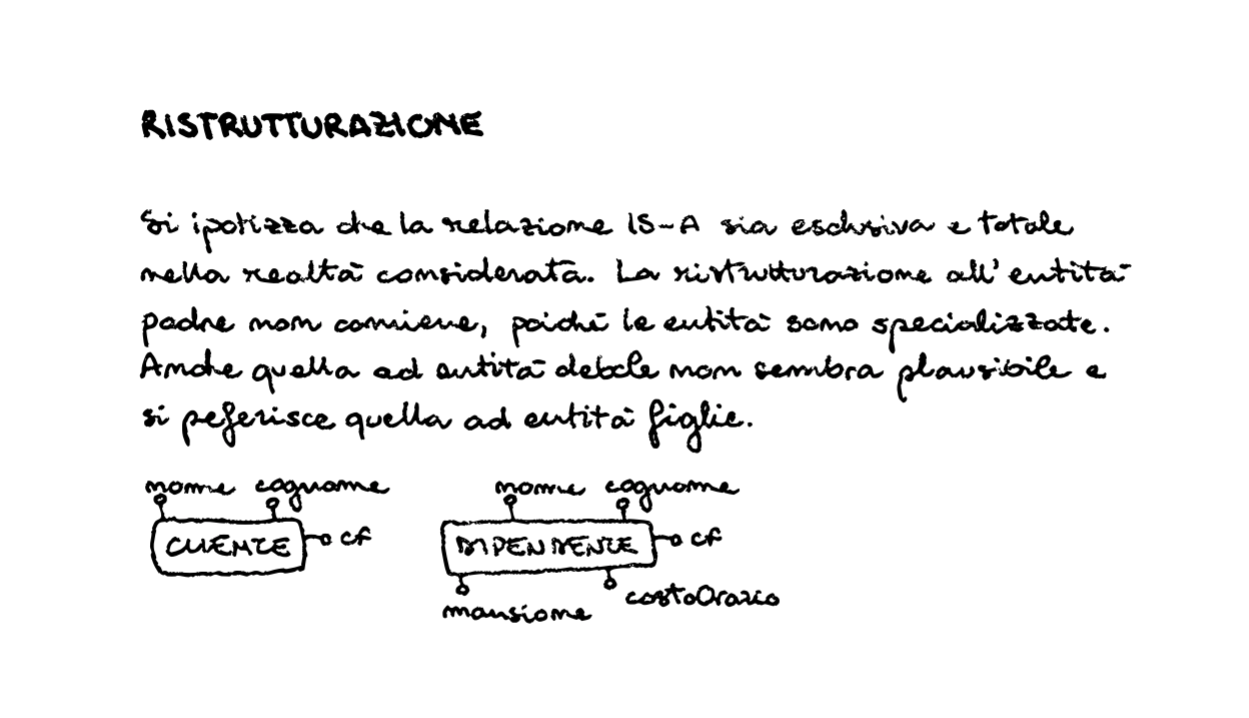 RISTRUTTURAZIONE
Si ipotizza che la relazione IS-A sia esclusiva e totale
nella realtà considerata. La ristrutturazione all'entità
padre non conviene, poiché le entità sono specializzate.
Anche quella ad entità debole non sembra plausibile e
si peferisce quella ad entità figlie.
nome cognome nome cognome
CLIENTE cf DIPENDENTE cf
mansione costoOrario